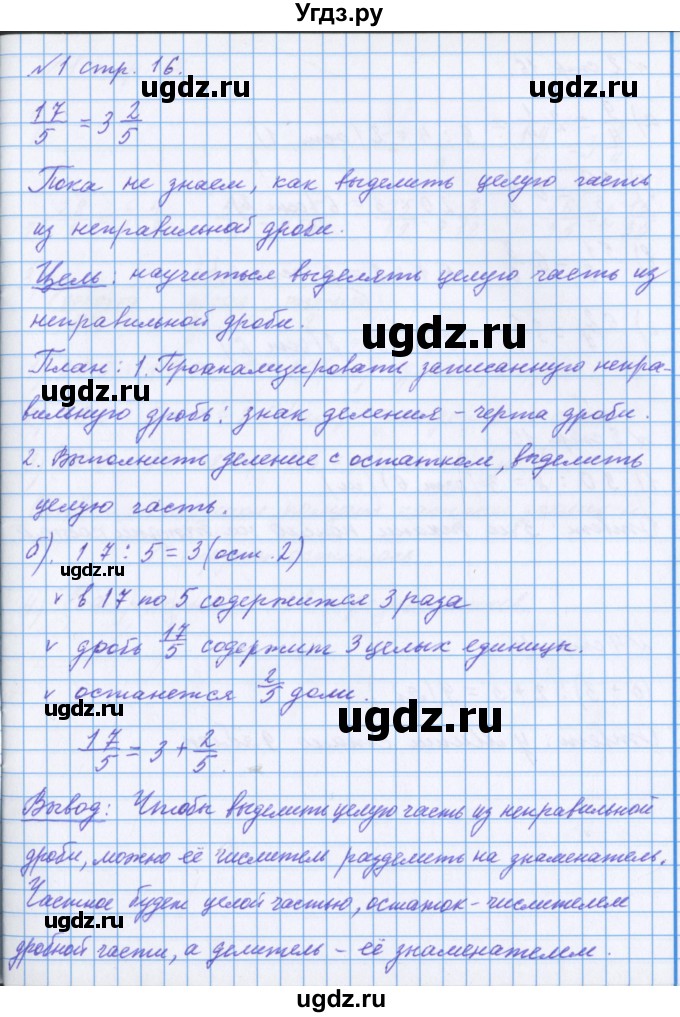 Угдз.ру
№1 стр. 16.
ugdz.ru ugdz.ru
17/5 = 3 2/5
Пока не знаем, как выделить целую часть
из неправильной дроби.
Цель: научиться выделять целую часть из
неправильной дроби.
ugdz.ru
План: 1. Проанализировать записанную непра-
ugdz.ru
вильную дробь: знак деления – черта дроби.
2. Выполнить деление с остатком, выделить
целую часть.
б). 17 : 5 = 3 (ост. 2)
ugdz.ru ugdz.ru
v в 17 по 5 содержится 3 раза
v дробь 17/5 содержит 3 целых единицы.
v останется 2/5 доли.
ugdz.ru ugdz.ru
17/5 = 3 + 2/5.
Вывод: Чтобы выделить целую часть из неправильной
дроби, можно её числитель разделить на знаменатель.
Частное будет целой частью, остаток – числителем
ugdz.ru ugdz.ru
дробной части, а делитель – её знаменателем.
ugdz.ru